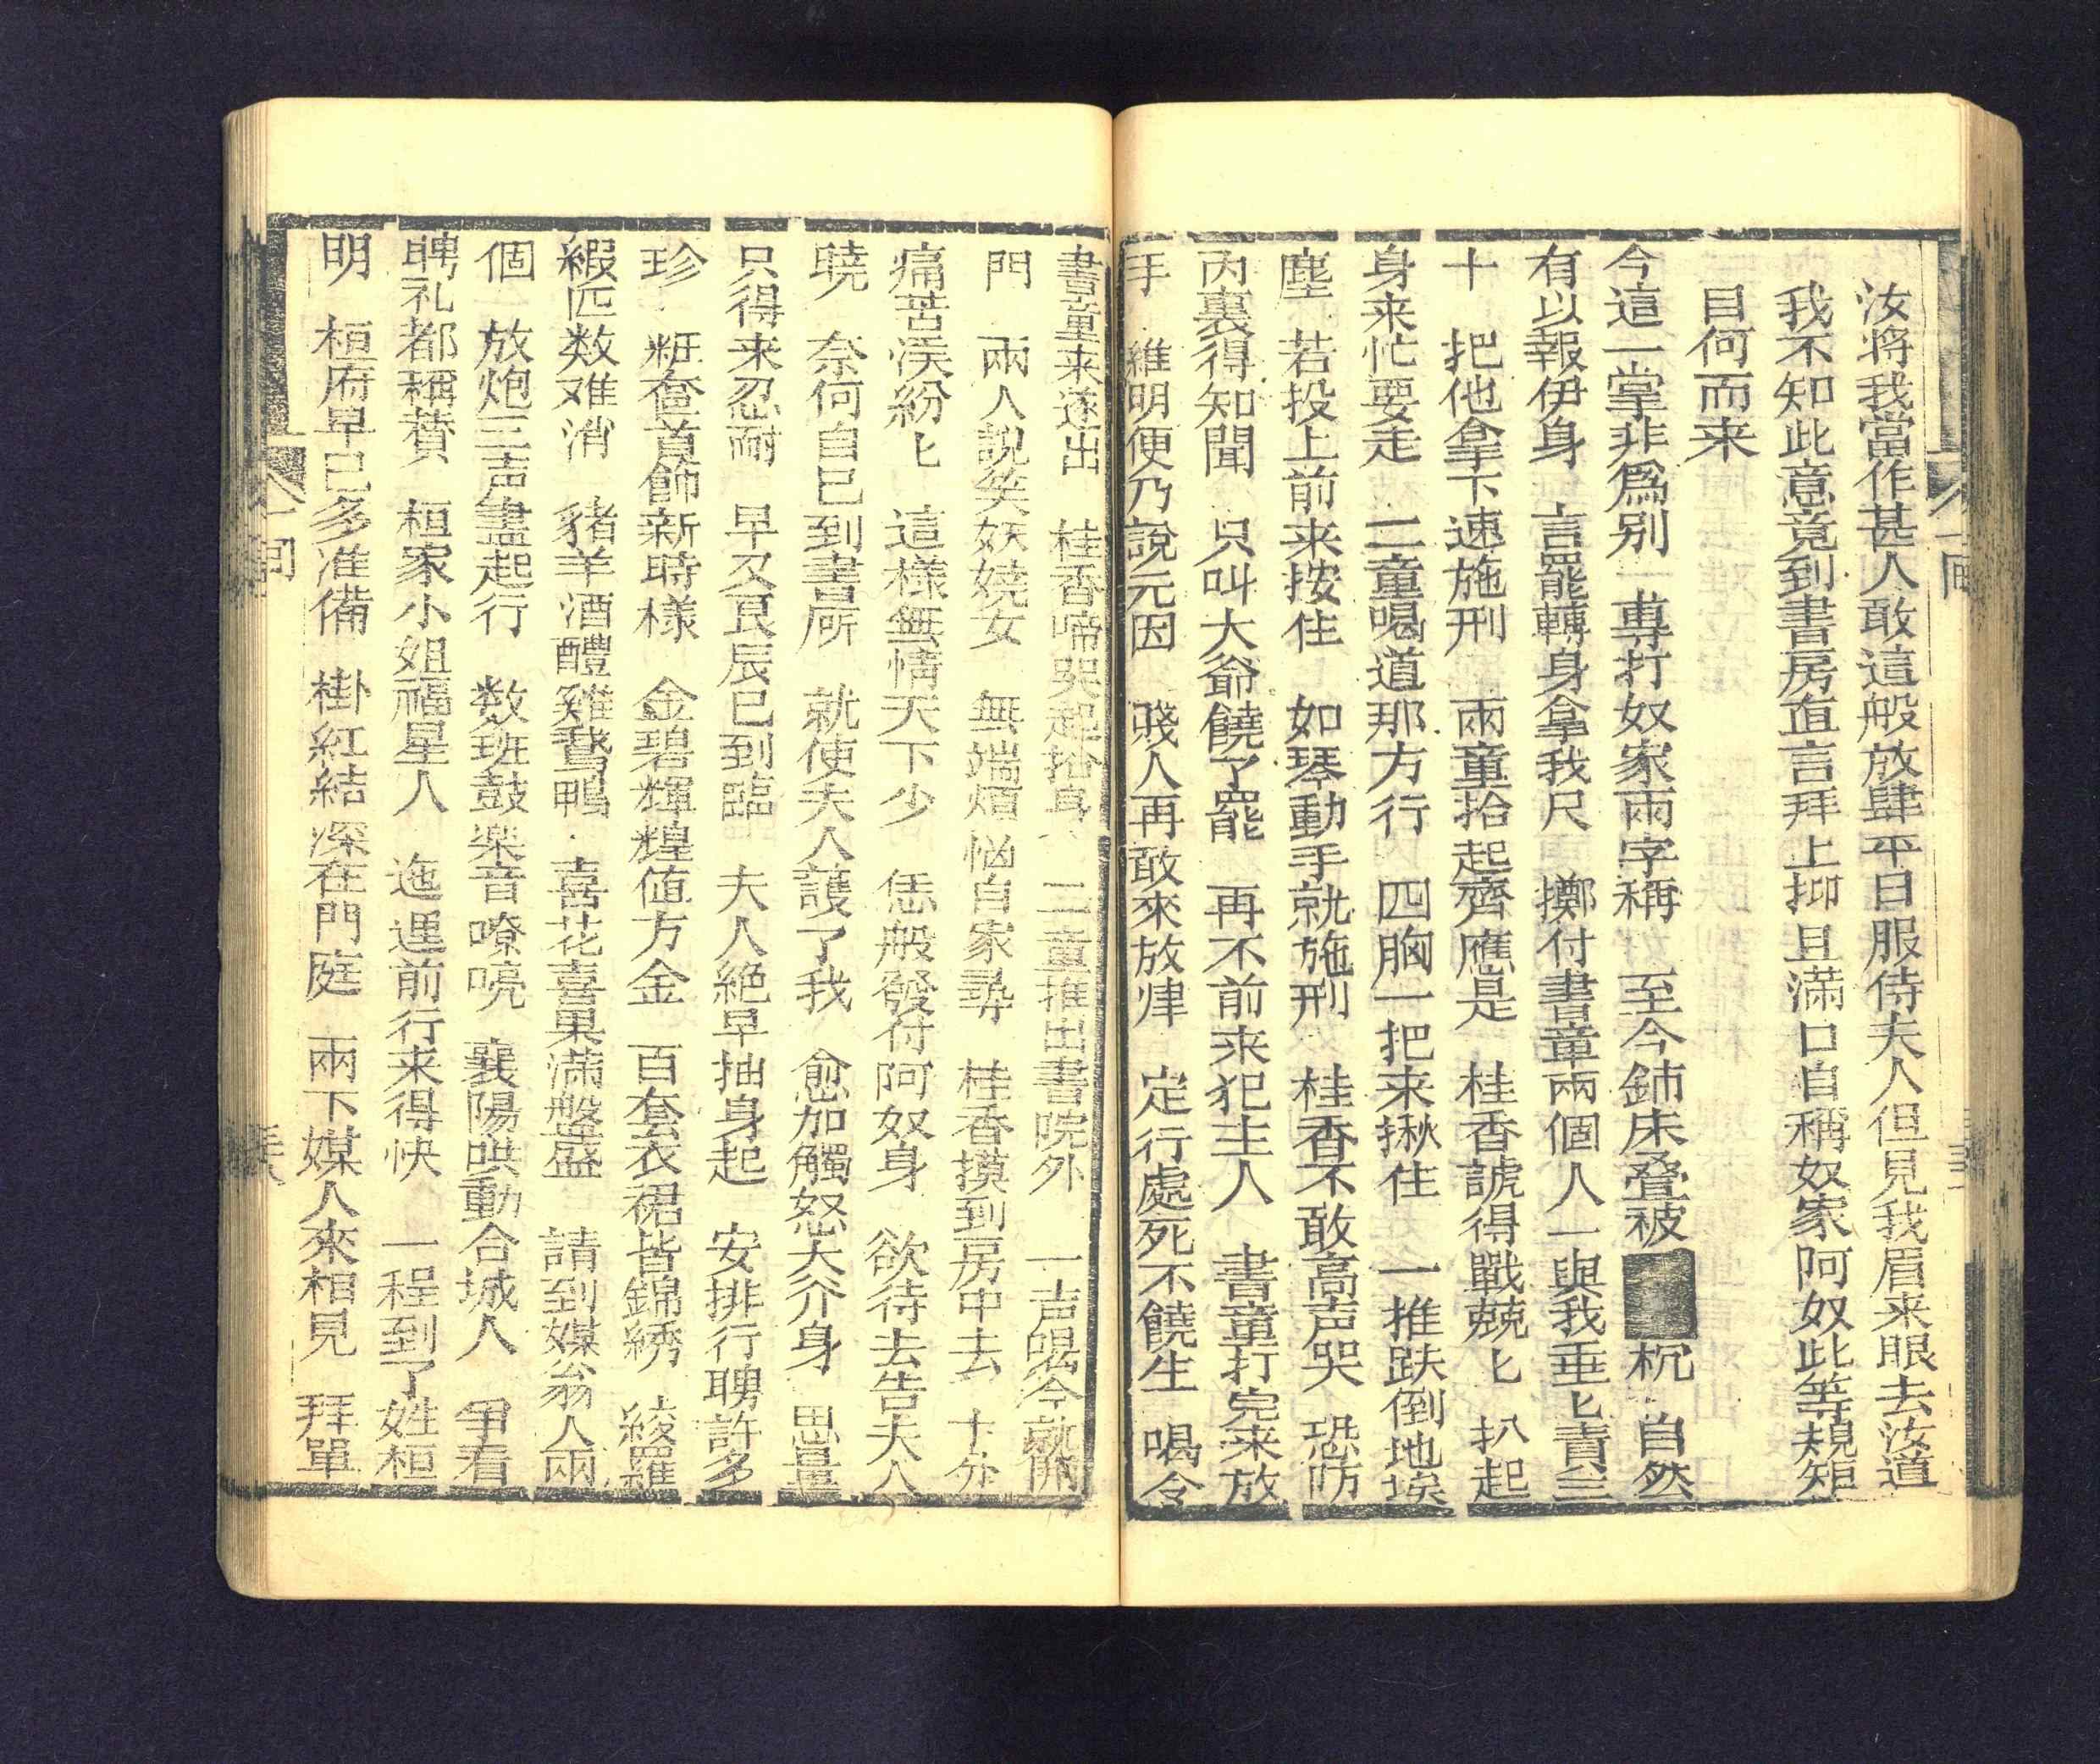 汝将我當作甚人敢這般放肆平日服侍夫人但見我眉来眼去汝道
我不知此意竟到書房直言拜上抑且滿口自稱奴家阿奴此等規矩
目何而来
今這一掌非爲别 專打奴家兩字稱 至今鋪床叠被 枕 自然
有以報伊身 言罷轉身拿我尺 擲付書童兩個人 與我重匕責三
十 把他拿下速施刑 兩童拾起齊應是 桂香諕得戰兢匕 扒起
身来忙要走 二童喝道那方行 四胸一把来揪住 一推跌倒地埃
塵 若投上前来按住 如琴動手就施刑 桂香不敢高声哭 恐防
内裏得知聞 只叫大爺饒了罷 再不前来犯主人 書童打完来放
手 維明便乃說元因 賤人再敢來放肆 定行處死不饒生 喝令
書童来逐出 桂香啼哭起抬身 二童推出書院外 一声喝令就開
門 兩人說笑妖嬈女 無端煩惱自家尋 桂香摸到房中去 十分
痛苦淚紛匕 這樣無情天下少 恁般發付阿奴身 欲待去告夫人
曉 奈何自己到書房 就使夫人護了我 愈加觸怒大介身 思量
只得来忍耐 早又艮辰已到臨 夫人絶早抽身起 安排行聘許多
珍 粧奩首飾新時樣 金碧輝煌值万金 百套衣裙皆錦綉 綾羅
緞匹数难消 豬羊酒醴雞鵞鴨 喜花喜果滿盤盛 請到媒翁人兩
個 放炮三声盡起行 数班鼓樂音嘹喨 襄陽哄動合城人 爭看
聘礼都稱贊 桓家小姐福星人 迤逦前行来得快 一程到了姓桓
明 桓府早已多准備 掛紅結深在門庭 兩下媒人來相見 拜單